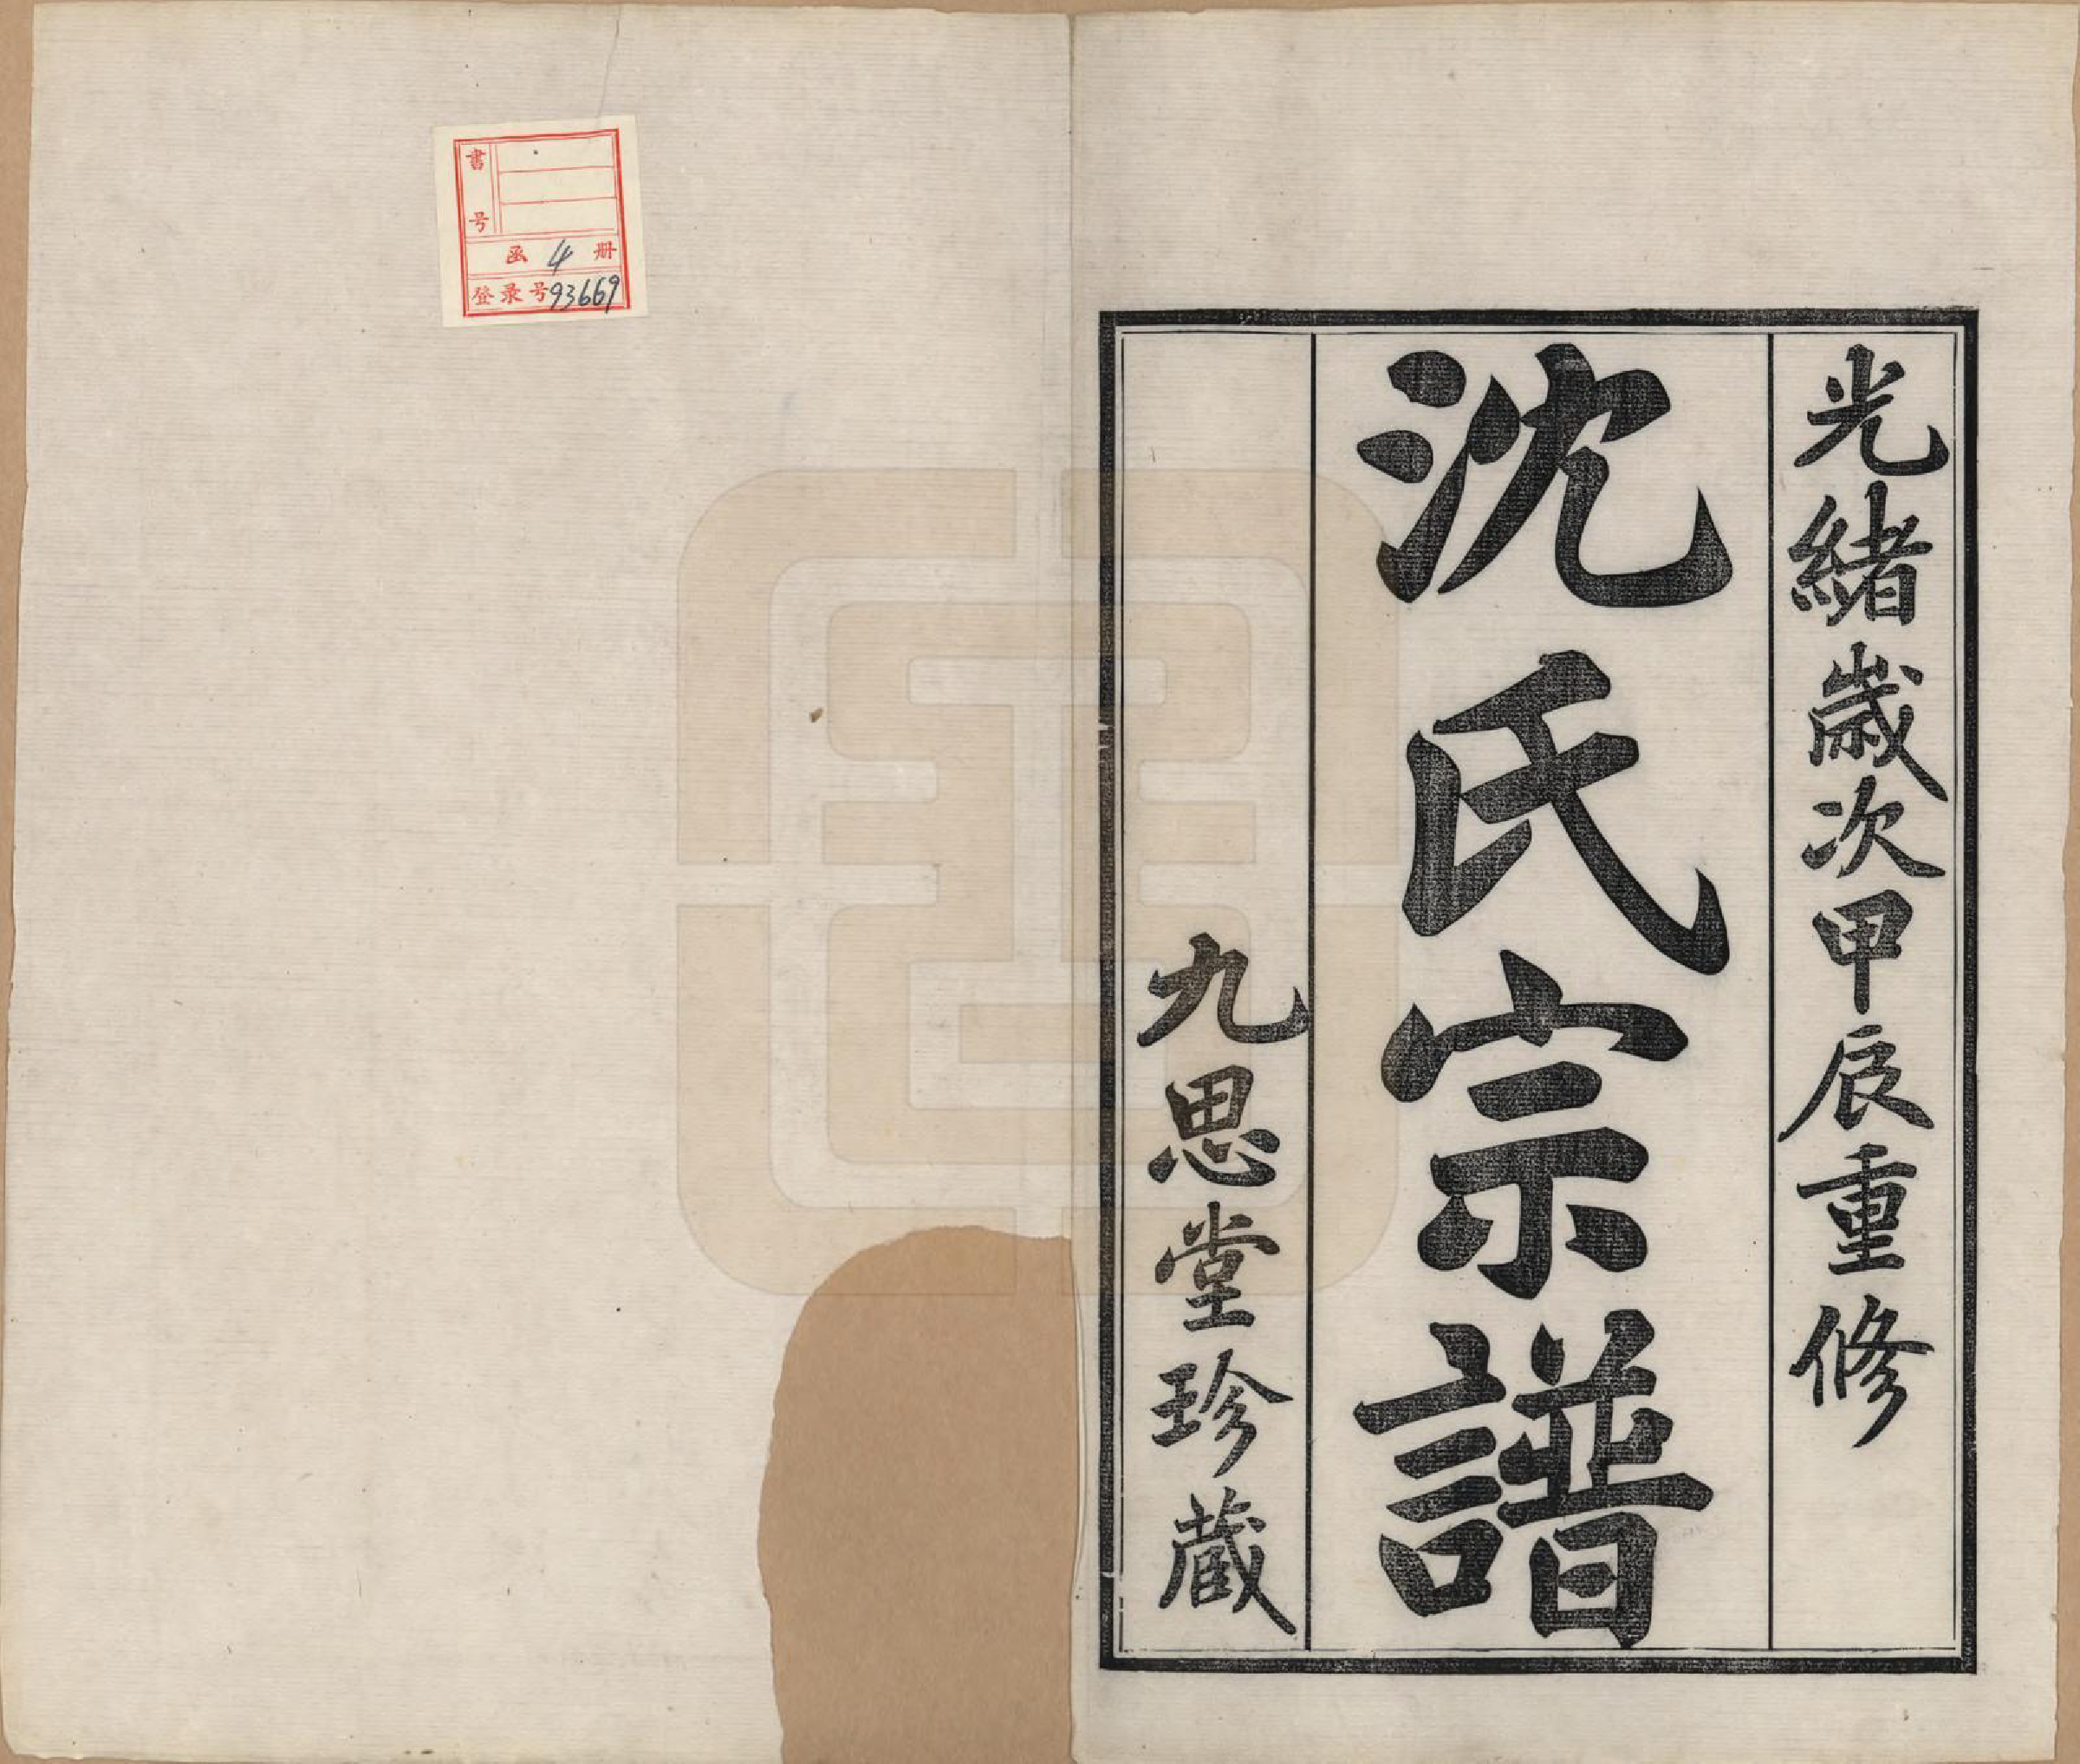 光緒歲次甲辰重修
沈氏宗譜
九思堂珍藏
書号
函 4 册
登录号93669